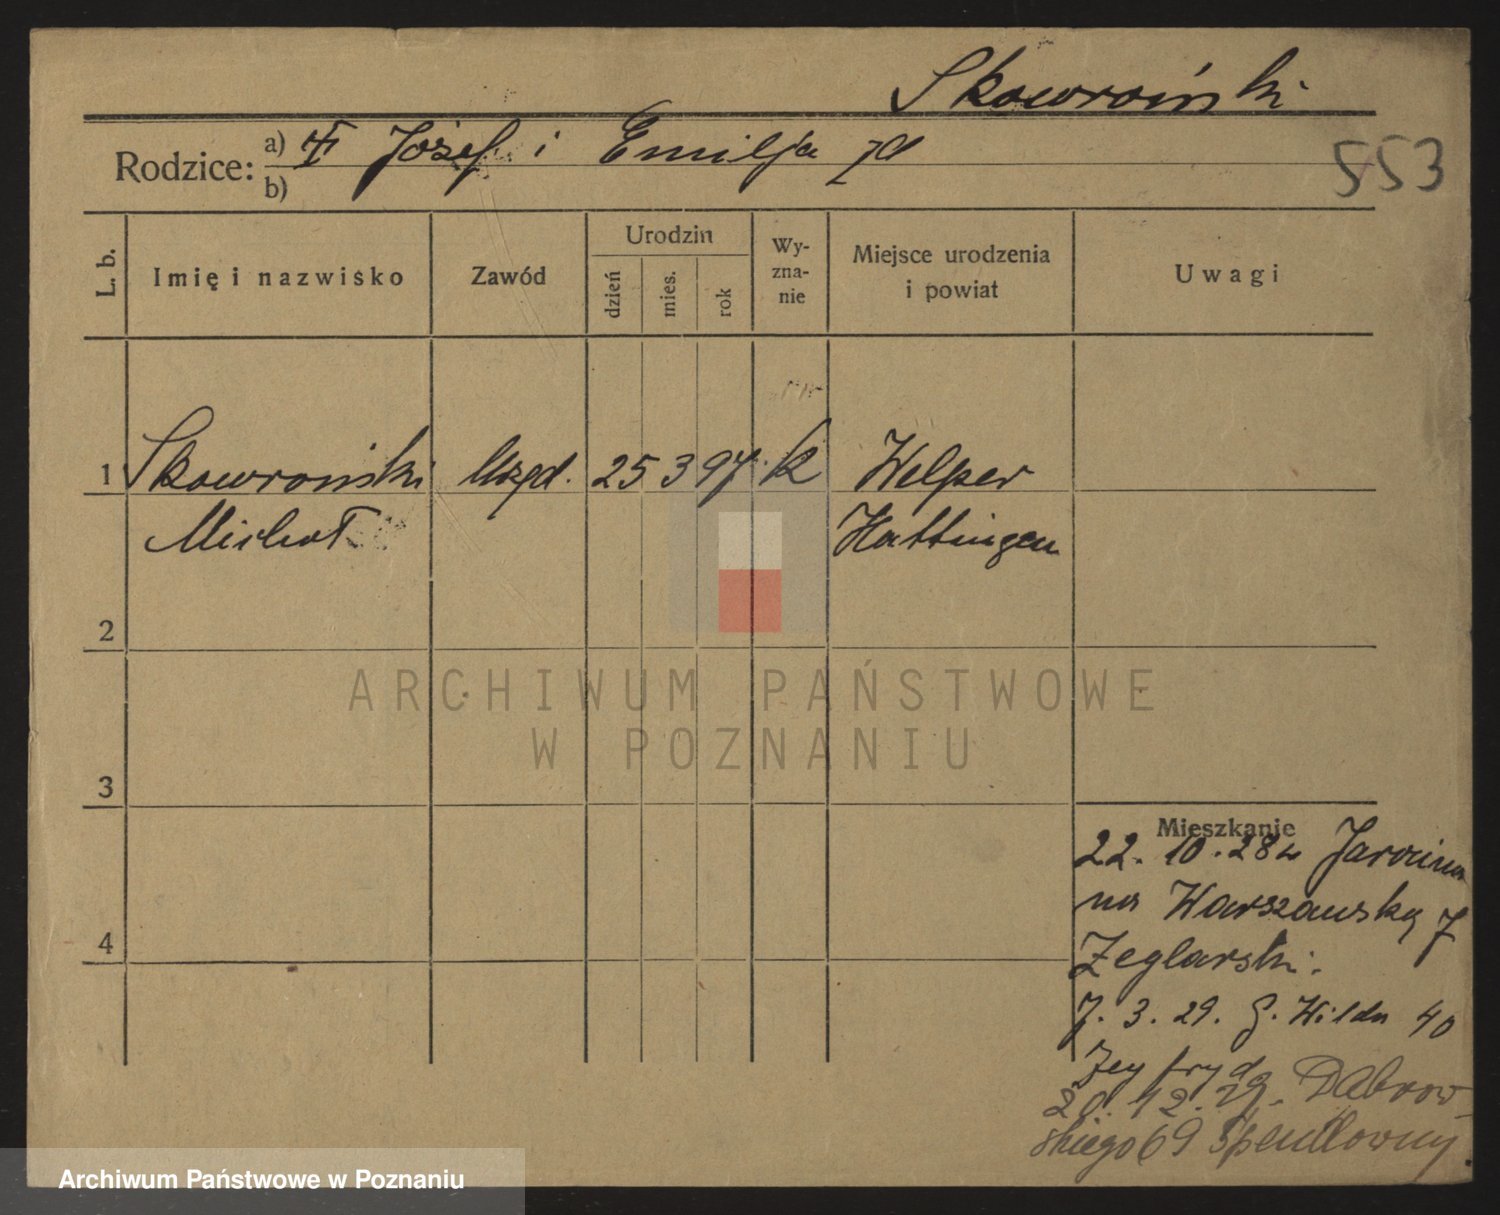 Skowroński
553
Rodzice: a) Józef i Emilja
b)
L. b.
Imię i nazwisko
Zawód
Urodzin
dzień
mies.
rok
Wy-
zna-
nie
Miejsce urodzenia
i powiat
Uwagi
1 Skowroński Urzęd. 25 3 97 k Welper
Michał Hattingen
2
3
4
Mieszkanie
22. 10. 28 Jarocina
na Warszawską 7
Żeglarski.
7. 3. 29. G. Wilda 40
Zeyfryd
12. 29. Dąbrow-
skiego 69
ARCHIWUM PAŃSTWOWE
W POZNANIU
Archiwum Państwowe w Poznaniu